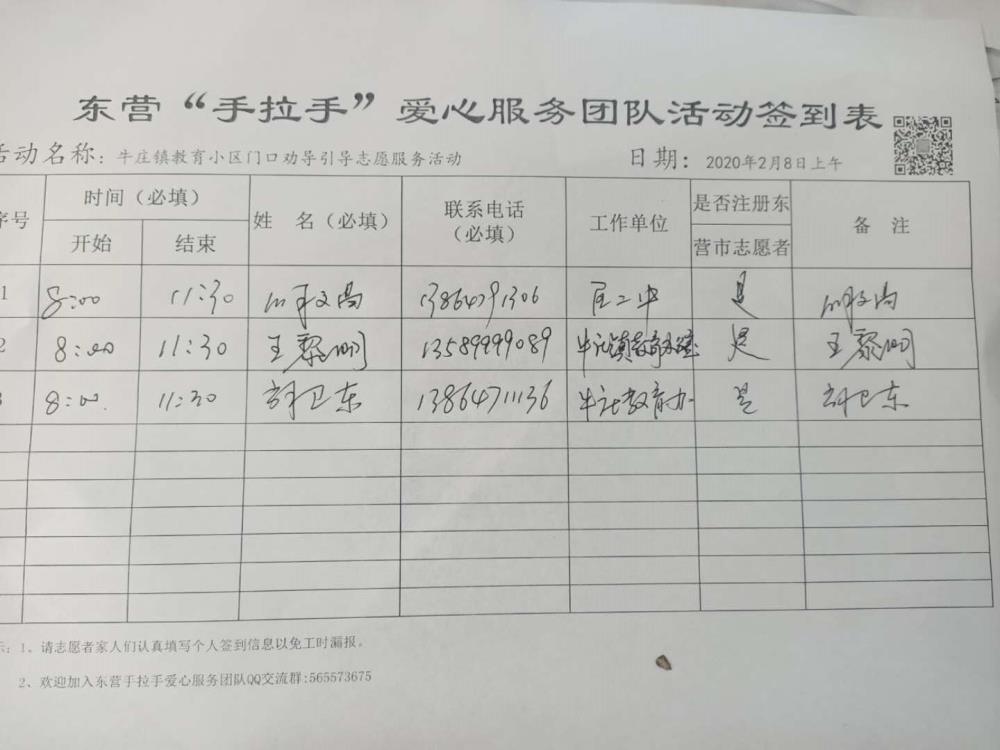 东营“手拉手”爱心服务团队活动签到表
活动名称：牛庄镇教育小区门口劝导引导志愿服务活动 日期：2020年2月8日上午
序号 时间（必填） 姓 名（必填） 联系电话（必填） 工作单位 是否注册东营市志愿者 备 注
开始 结束
1 8:00 11:30 13864791306 是
2 8:00 11:30 王黎明 13589999089 牛庄镇教育办 是 王黎明
3 8:00 11:30 胡卫东 13864711136 牛庄教育办 是 胡卫东
示：1、请志愿者家人们认真填写个人签到信息以免工时漏报。
2、欢迎加入东营手拉手爱心服务团队QQ交流群:565573675